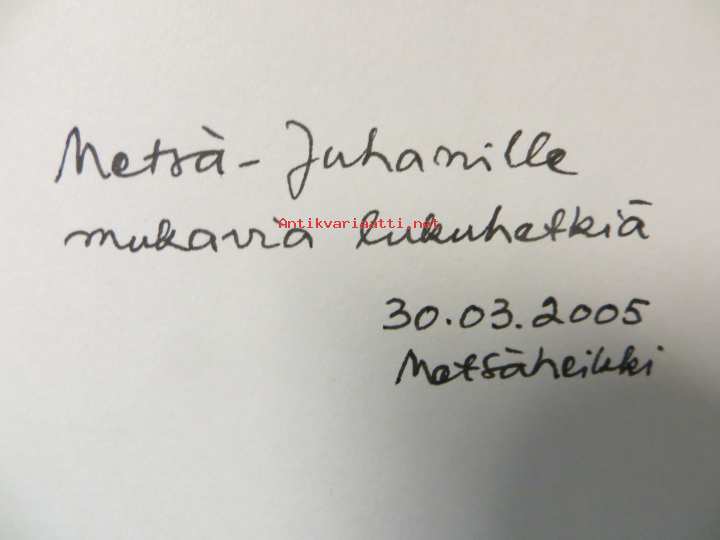 Metsä-Juhanille
Antikvariaatti.net
mukavia lukuhetkiä
30.03.2005
Metsäheikki